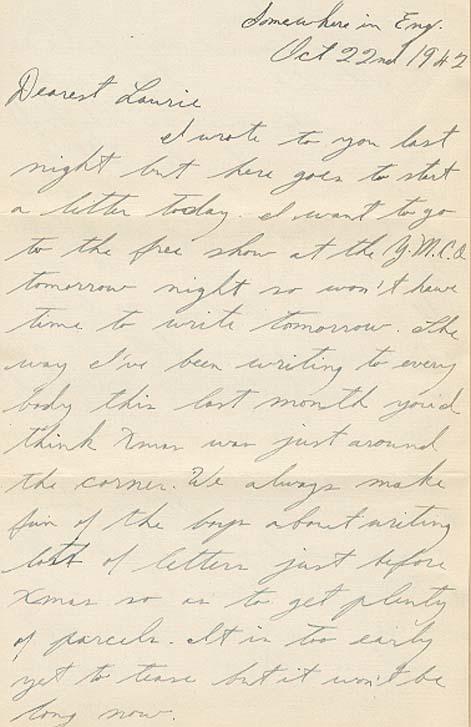 Somewhere in Eng.
Oct 22nd 1942
Dearest Laurie
I wrote to you last
night but here goes to start
a letter today. I want to go
to the free show at the Y.M.C.A
tomorrow night so won't have
time to write tomorrow. The
way I've been writing to every
body this last month you'd
think Xmas was just around
the corner. We always make
fun of the boys about writing
lots of letters just before
Xmas so as to get plenty
of parcels. It is too early
yet to tease but it won't be
long now.